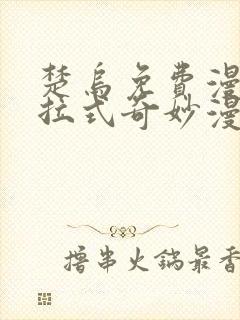 楚乌免费漫
拉式奇妙漫
撸串火锅最香